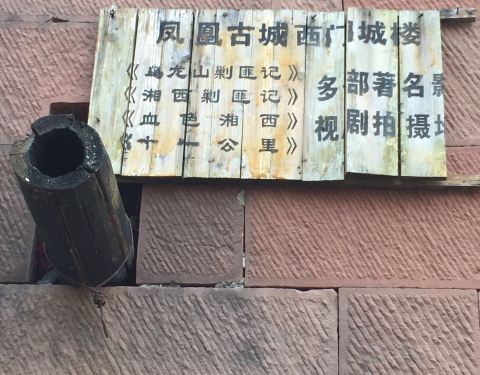 凤凰古城西门城楼
《乌龙山剿匪记》
《湘西剿匪记》
《血色湘西》
《十一公里》
多部著名影
视剧拍摄地